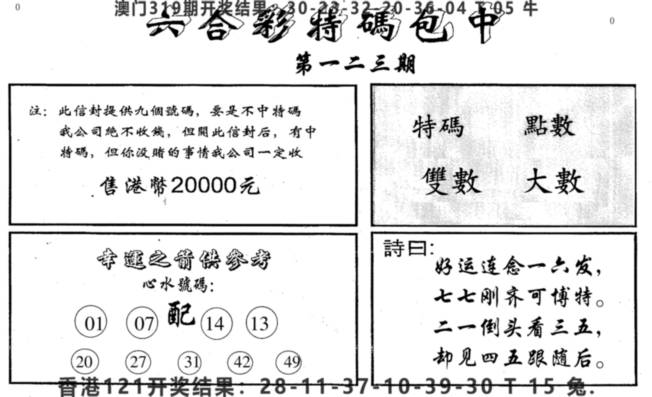 澳门319期开奖结果：30-23-32-20-36-04 T 05 牛
六合彩特碼包中
第一二三期
注：此信封提供九個號碼，要是不中特碼
我公司絶不收錢，但開此信封后，有中
特碼，但你没賭的事情我公司一定收
售港幣20000元
特碼 點數
雙數 大數
幸運之箭供參考
心水號碼：
01 07 配 14 13
20 27 31 42 49
詩曰：
好运连念一六发，
七七刚齐可博特。
二一倒头看三五，
却见四五跟随后。
香港121开奖结果：28-11-37-10-39-30 T 15 兔.